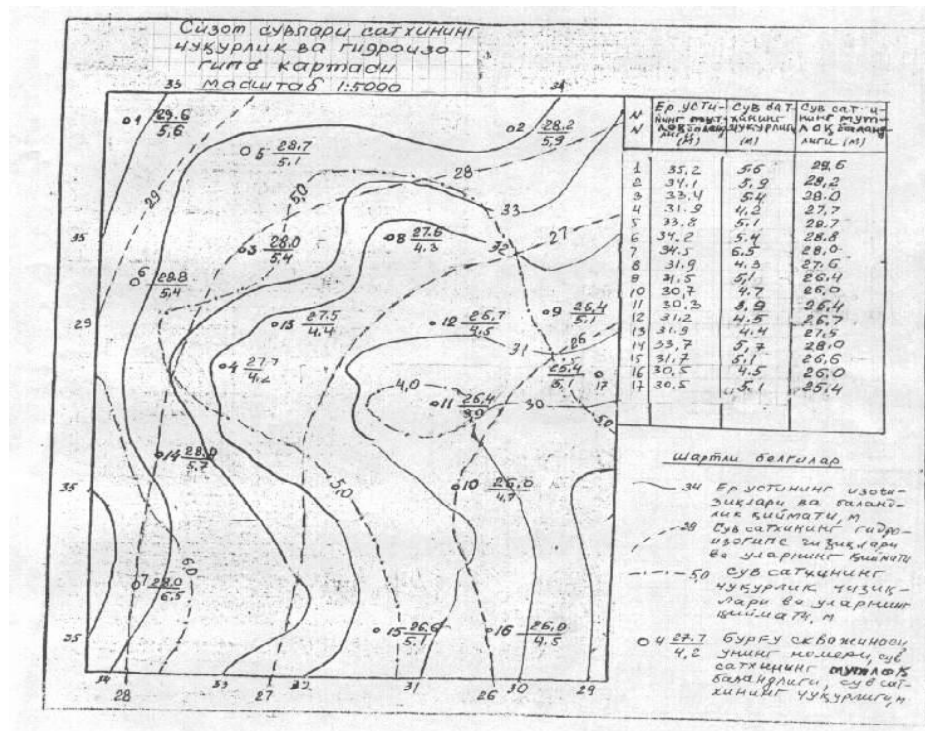 Сизот сувлари сатхининг
чуқурлик ва гидроизо-
гипс картаси
масштаб 1:5000
33
34
1 29.6
5,6
2 28.2
5,9
5 28.7
5.1
29
5,0
28
33
27
35
3 28.0
5,4
8 27.6
4.3
32
6 28.8
5,4
29
13 27.5
4.4
12 26,7
4,5
9 26,4
5,1
31
26
4 27.7
4,2
25,4
5,1
17
4,0
11 26,4
3,9
30
5,0
14 28.0
5.7
35
5,0
10 26,0
4,7
7 28.0
6.5
6,0
25
15 26.6
5.1
16 26,0
4,5
34
28
33
27
32
31
26
30
29
N
N
Ер усти-
нинг мут-
лоқ баланд-
лиги
(м)
Сув сат-
хининг
чуқурлиги
(м)
Сув сат-и-
нинг мут-
лоқ баланд-
лиги (м)
1 35,2 5,6 29,6
2 34,1 5,9 28,2
3 33,4 5,4 28.0
4 31.9 4,2 27,7
5 33,8 5,1 28,7
6 34,2 5,4 28,8
7 34,5 6,5 28,0
8 31,9 4,3 27,6
9 31,5 5,1 26,4
10 30,7 4,7 26,0
11 30,3 3,9 26,4
12 31,2 4,5 26,7
13 31,9 4,4 27,5
14 33,7 5,7 28,0
15 31,7 5,1 26,6
16 30,5 4,5 26,0
17 30,5 5,1 25,4
Шартли белгилар
34 Ер устининг изогип-
зиқлари ва баланд-
лик қиймати, м
28 Сув сатхининг гидро-
изогипс чизиқлари
ва уларнинг қиймати
5,0 Сув сатхининг
чуқурлик чизиқ-
лари ва уларнинг
қиймати, м
4 27.7
4,2
Бурғу скважинаси
унинг номери, сув
сатхининг мутлоқ
баландлиги, сув сат-
хининг чуқурлиги, м